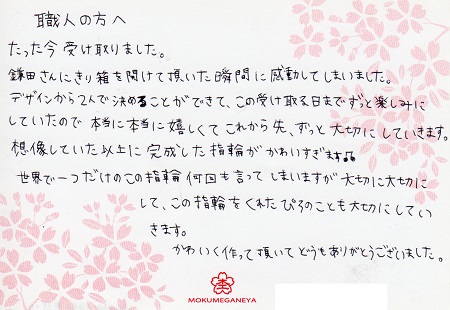 職人の方へ
たった今受け取りました。
鎌田さんにきり箱を開けて頂いた瞬間に感動してしまいました。
デザインから2人で決めることができて、この受け取る日までずっと楽しみに
していたので 本当に本当に嬉しくて これから先、ずっと 大切にしていきます。
想像していた以上に 完成した指輪が かわいすぎます♫
世界で一つだけのこの指輪 何回も言って しまいますが 大切に大切に
して、この指輪をくれた ぴろのことも大切にしてい
きます。
かわいく作って頂いて どうもありがとうございました。
MOKUMEGANEYA